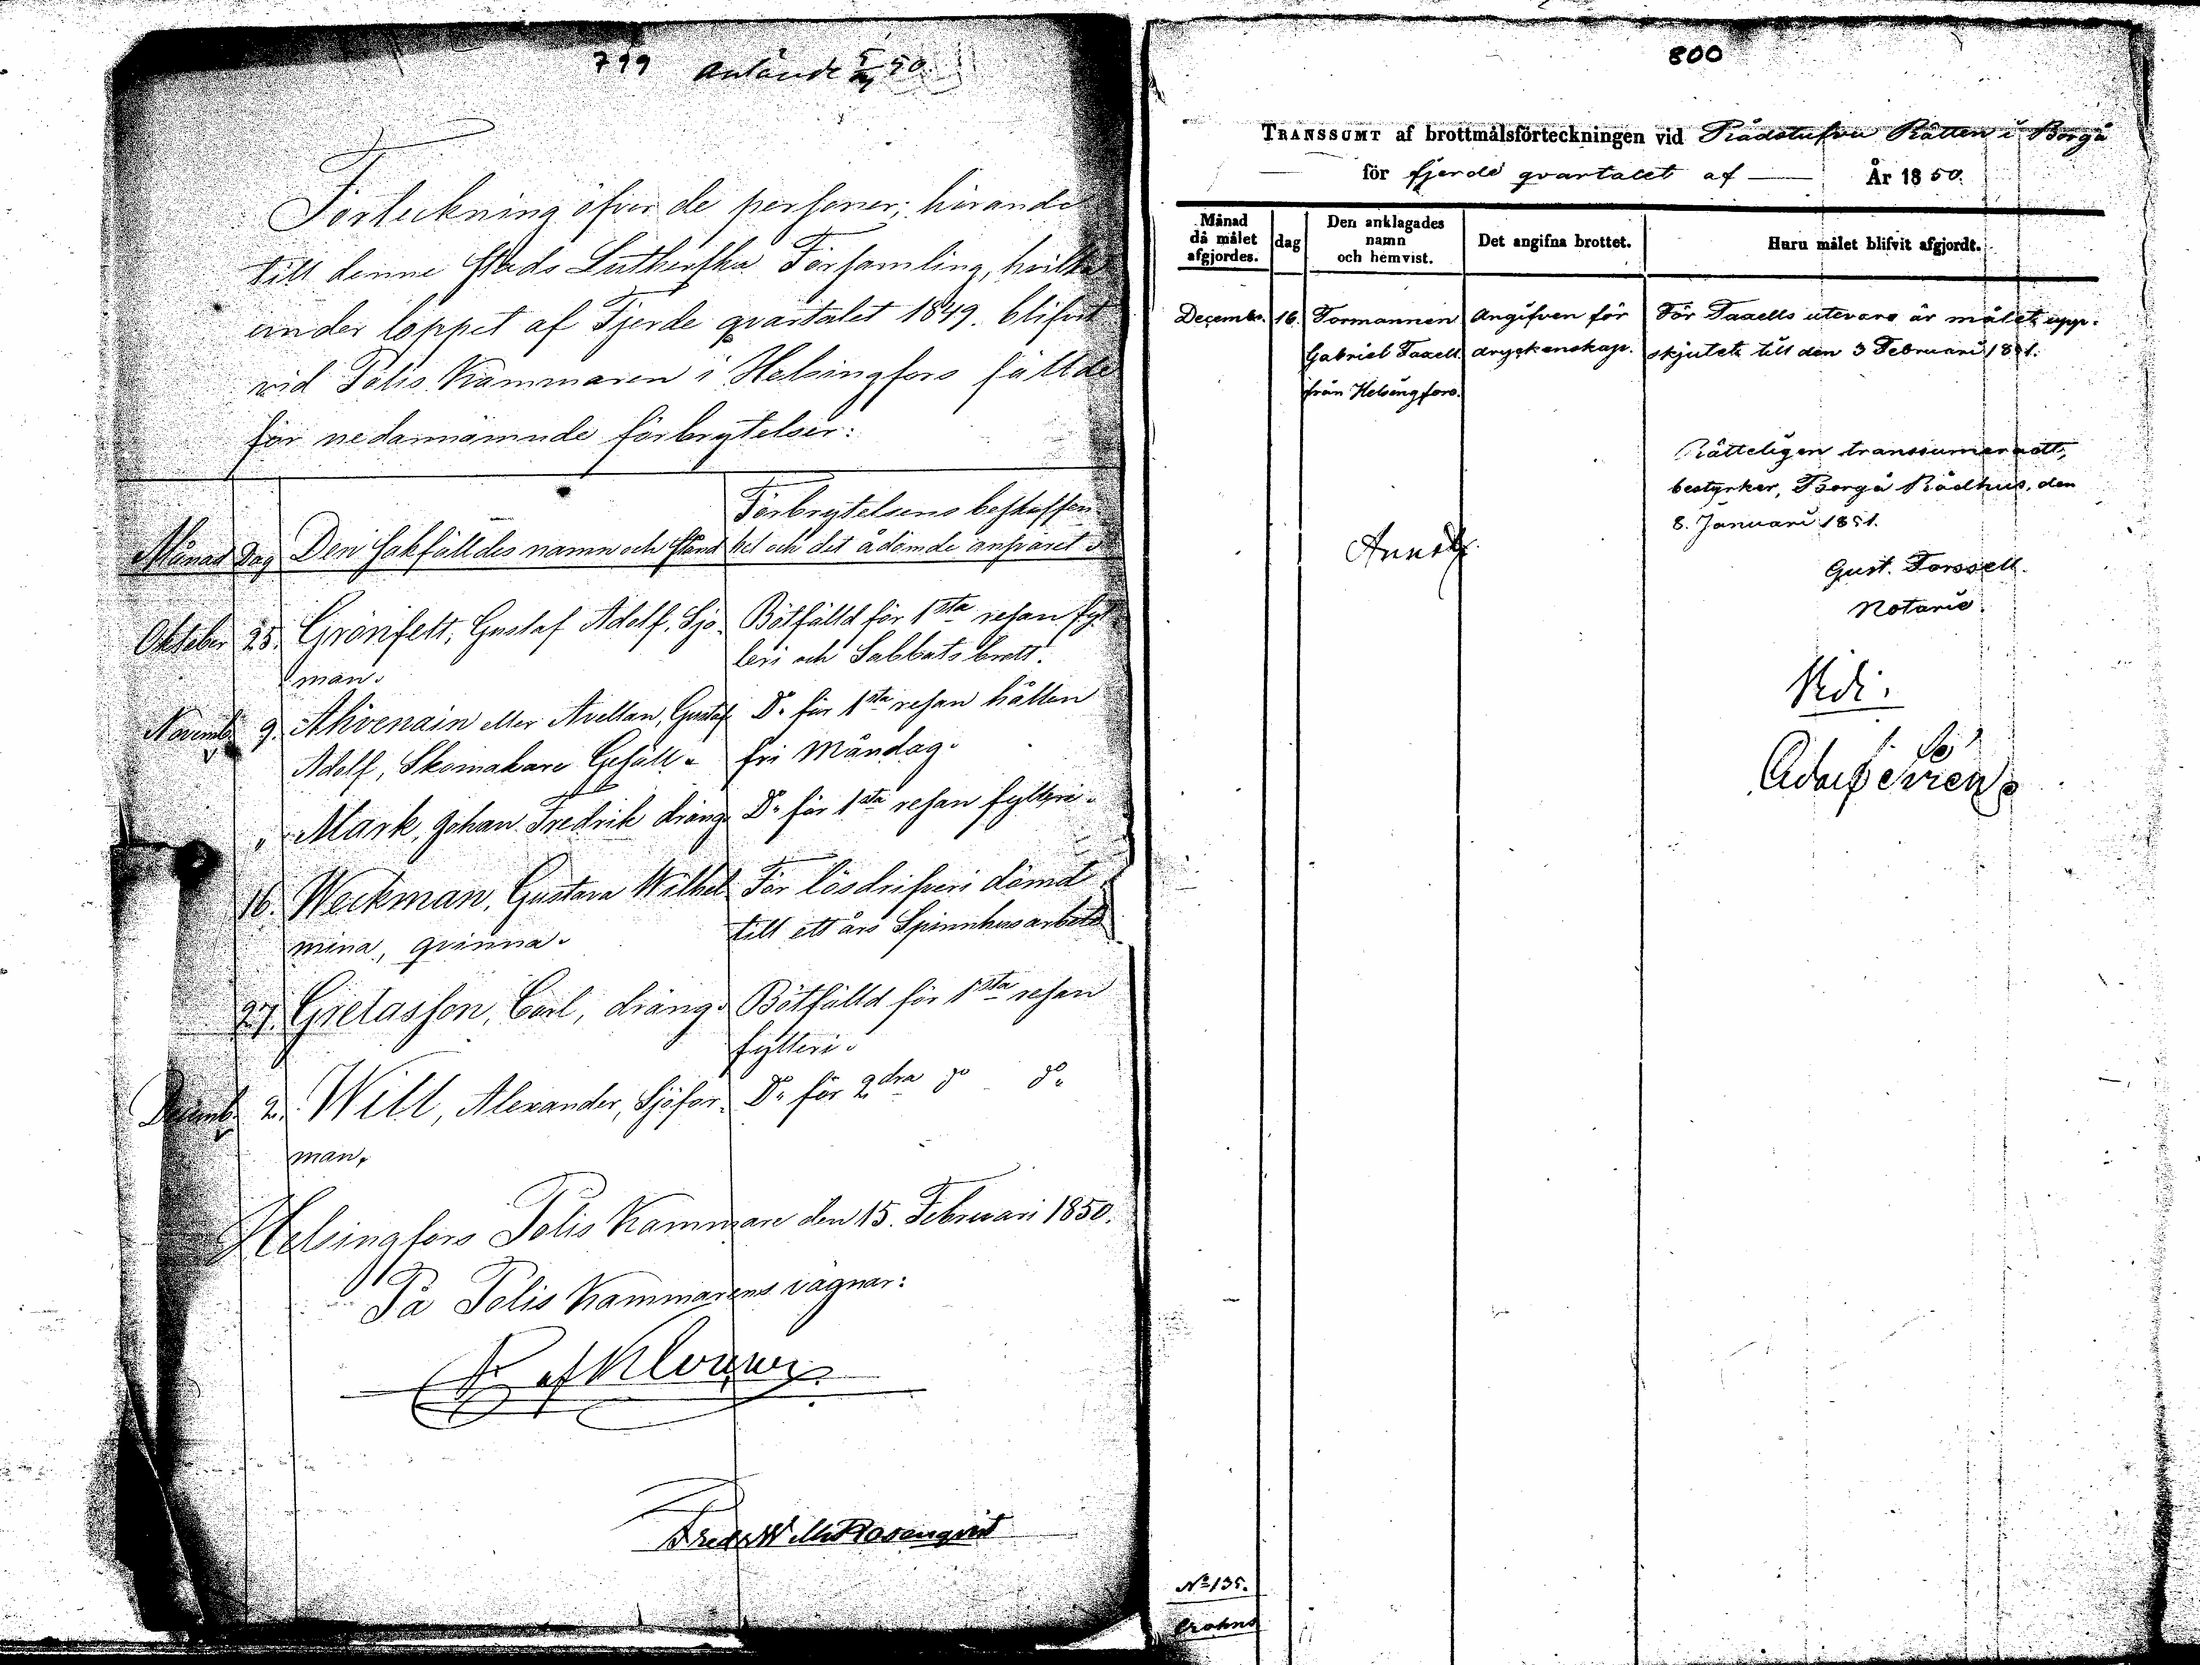 799 Anlände 5/3 50.
Förteckning öfver de personer, hörande
till denne Stads Lutherska Församling, hvilka
under loppet af Fjerde qvartalet 1849. blifvit
vid Polis Kammaren i Helsingfors fällde
för nedannämnde förbrytelser:
Månad Dag Den sakfälldes namn och stånd Förbrytelsens beskaffen-
het och det ådömde ansvaret.
Oktober 25. Grönfelt, Gustaf Adolf, Sjö- Bötfälld för 1sta resan fyl-
man. leri och Sabbatsbrott.
Novemb. 9. Ahvenain eller Avellan, Gustaf Do för 1sta resan hållen
Adolf, Skomakare Gesäll. fri Måndag.
" Mark, Johan Fredrik dräng. Do för 1sta resan fylleri.
16. Weckman, Gustava Wilhel- För lösdrifveri dömd
mina, qvinna. till ett års Spinnhusarbete
27. Gretasson, Carl, dräng. Bötfälld för 1sta resan
fylleri.
Decemb. 2. Will, Alexander, Sjöfor- Do för 2dra do do
man,
Helsingfors Polis Kammare den 15. Februari 1850.
På Polis Kammarens vägnar:
Fredr Wilh Rosenqvist
800
TRANSSUMT af brottmålsförteckningen vid Rådstufvu Rätten i Borgå
för fjerde qvartalet af År 1850.
Månad då målet afgjordes. dag Den anklagades namn och hemvist. Det angifna brottet. Huru målet blifvit afgjordt.
Decembr. 16. Formannen Angifven för För Taxells utevaro är målet upp-
Gabriel Taxell dryckenskap. skjutet till den 3 Februari 1851.
från Helsingfors.
Rätteligen transsumeradt,
bestyrker, Borgå Rådhus, den
8. Januari 1851.
Gust. Forssell.
Notarie.
Vidi.
No 135.